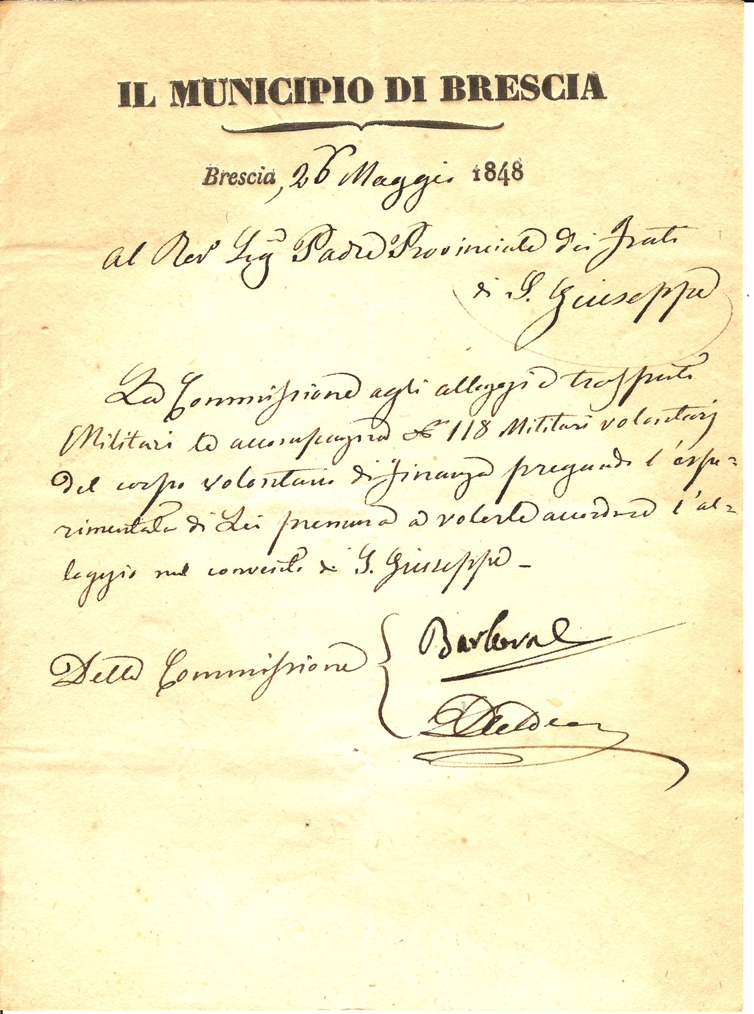 IL MUNICIPIO DI BRESCIA
Brescia, 26 Maggio 1848
Al Rev.º Sig.r Padre Provinciale dei Frati
di S. Giuseppe
La Commissione agli alloggi e trasporti
Militari le accompagna N 118 Militari volontarj
del corpo volontario di finanza pregando l'espe=
rimentata di Lei premura a volerle accordare l'al=
loggio nel convento di S. Giuseppe -
Detta Commissione